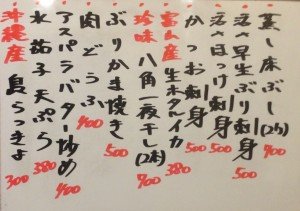 蒸し床ぶし(2ケ) 400
活〆早生ぶり刺身 500
活〆ほっけ刺身 500
かつお刺身 500
富山産 生ホタルイカ 380
珍味 八角一夜干し(2本)
ぶりかま焼き 500
肉どうふ 400
アスパラバター炒め 400
水茄子天ぷら 380
沖縄産 島らっきょ 300